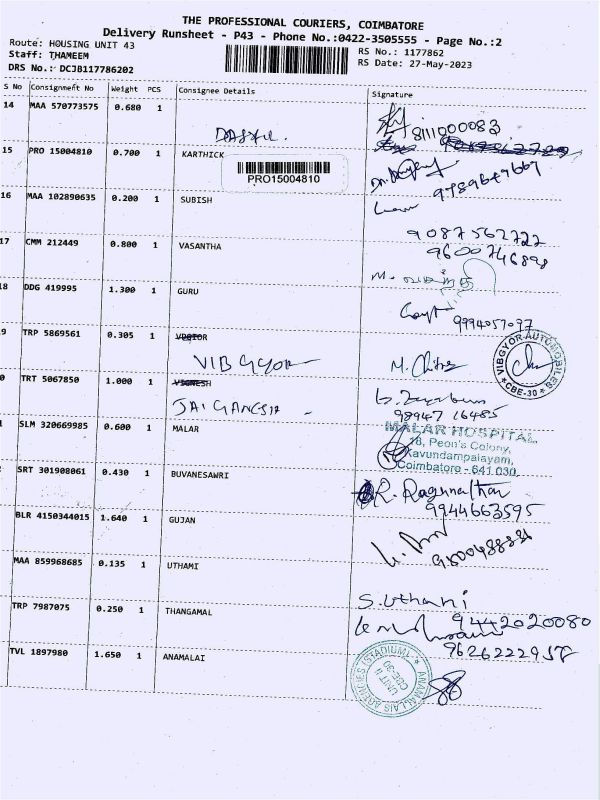 THE PROFESSIONAL COURIERS, COIMBATORE
Delivery Runsheet - P43 - Phone No.:0422-3505555 - Page No.:2
Route: HOUSING UNIT 43
Staff: THAMEEM
DRS No.: DCJB117786202
RS No.: 1177862
RS Date: 27-May-2023
S No Consignment No Weight PCS Consignee Details Signature
14 MAA 570773575 0.680 1
8111000083
15 PRO 15004810 0.700 1 KARTHICK
PRO15004810
16 MAA 102890635 0.200 1 SUBISH
9087562722
17 CMM 212449 0.800 1 VASANTHA
9600746898
18 DDG 419995 1.300 1 GURU
9994057097
9 TRP 5869561 0.305 1
VIBGYOR
M. Chitra
VIBGYOR AUTOMOBILES
CBE-30
0 TRT 5067850 1.000 1 VIGNESH
JAI GANESH
98947 16485
SLM 320669985 0.600 1 MALAR
MALAR HOSPITAL
18, Peon's Colony,
Kavundampalayam,
Coimbatore - 641 030.
SRT 301908061 0.430 1 BUVANESAWRI
R. Ragunathan
9944663595
BLR 4150344015 1.640 1 GUJAN
MAA 859968685 0.135 1 UTHAMI
S. Uthami
TRP 7987075 0.250 1 THANGAMAL
9442020080
9626222958
TVL 1897980 1.650 1 ANAMALAI
ANAMALAIS AGENCIES (STADIUM)
UNIT II
CBE-30